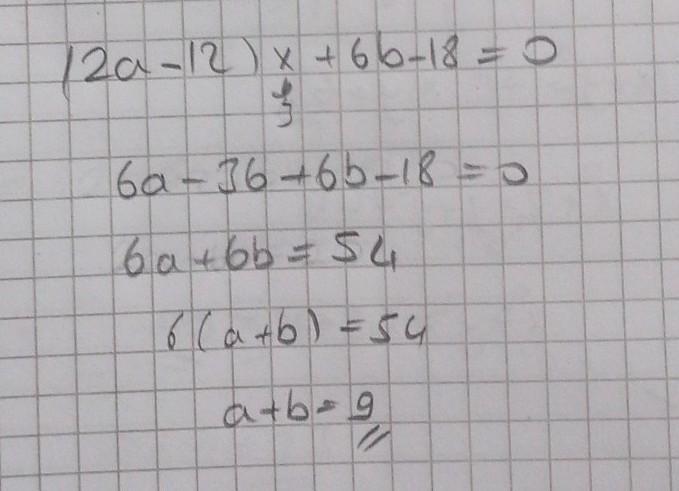 (2a-12)x+6b-18=0
↓
3
6a-36+6b-18=0
6a+6b=54
6(a+b)=54
a+b=9